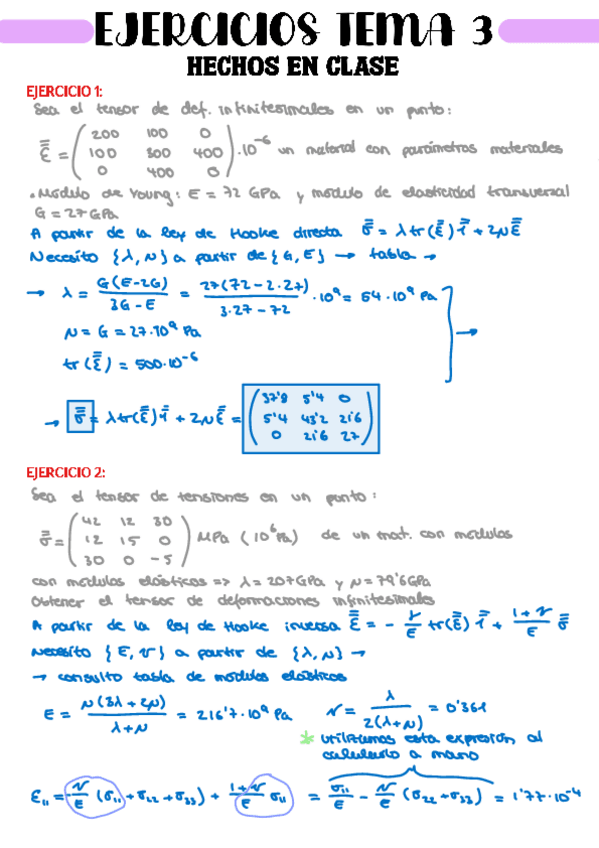 EJERCICIOS TEMA 3
HECHOS EN CLASE
EJERCICIO 1:
Sea el tensor de def. infinitesimales en un punto:
ε̿ = (200 100 0
100 300 400
0 400 0) · 10⁻⁶ un material con parámetros materiales
• Módulo de Young: E = 72 GPa y módulo de elasticidad transversal
G = 27 GPa
A partir de la ley de Hooke directa σ̿ = λ tr(ε̿) I̿ + 2μ ε̿
Necesito {λ, μ} a partir de {G, E} → tabla →
→ λ = G(E-2G) / 3G-E = 27(72-2·27) / 3·27-72 · 10⁹ = 54·10⁹ Pa
μ = G = 27·10⁹ Pa
tr(ε̿) = 500·10⁻⁶
→ σ̿ = λ tr(ε̿) I̿ + 2μ ε̿ = (37'8 5'4 0
5'4 43'2 21'6
0 21'6 27)
EJERCICIO 2:
Sea el tensor de tensiones en un punto:
σ̿ = (42 12 30
12 15 0
30 0 -5) MPa (10⁶Pa) de un mat. con módulos
con módulos elásticos => λ = 207GPa y μ = 79'6GPa
Obtener el tensor de deformaciones infinitesimales
A partir de la ley de Hooke inversa ε̿ = - ν/E tr(σ̿) I̿ + 1+ν/E σ̿
Necesito {E, ν} a partir de {λ, μ} →
→ consulto tabla de módulos elásticos
E = μ(3λ+2μ) / λ+μ = 216'7·10⁹ Pa ν = λ / 2(λ+μ) = 0'361
* utilizamos esta expresión al
calcularlo a mano
ε₁₁ = -ν/E (σ₁₁+σ₂₂+σ₃₃) + 1+ν/E σ₁₁ = σ₁₁/E - ν/E (σ₂₂+σ₃₃) = 1'77·10⁻⁴